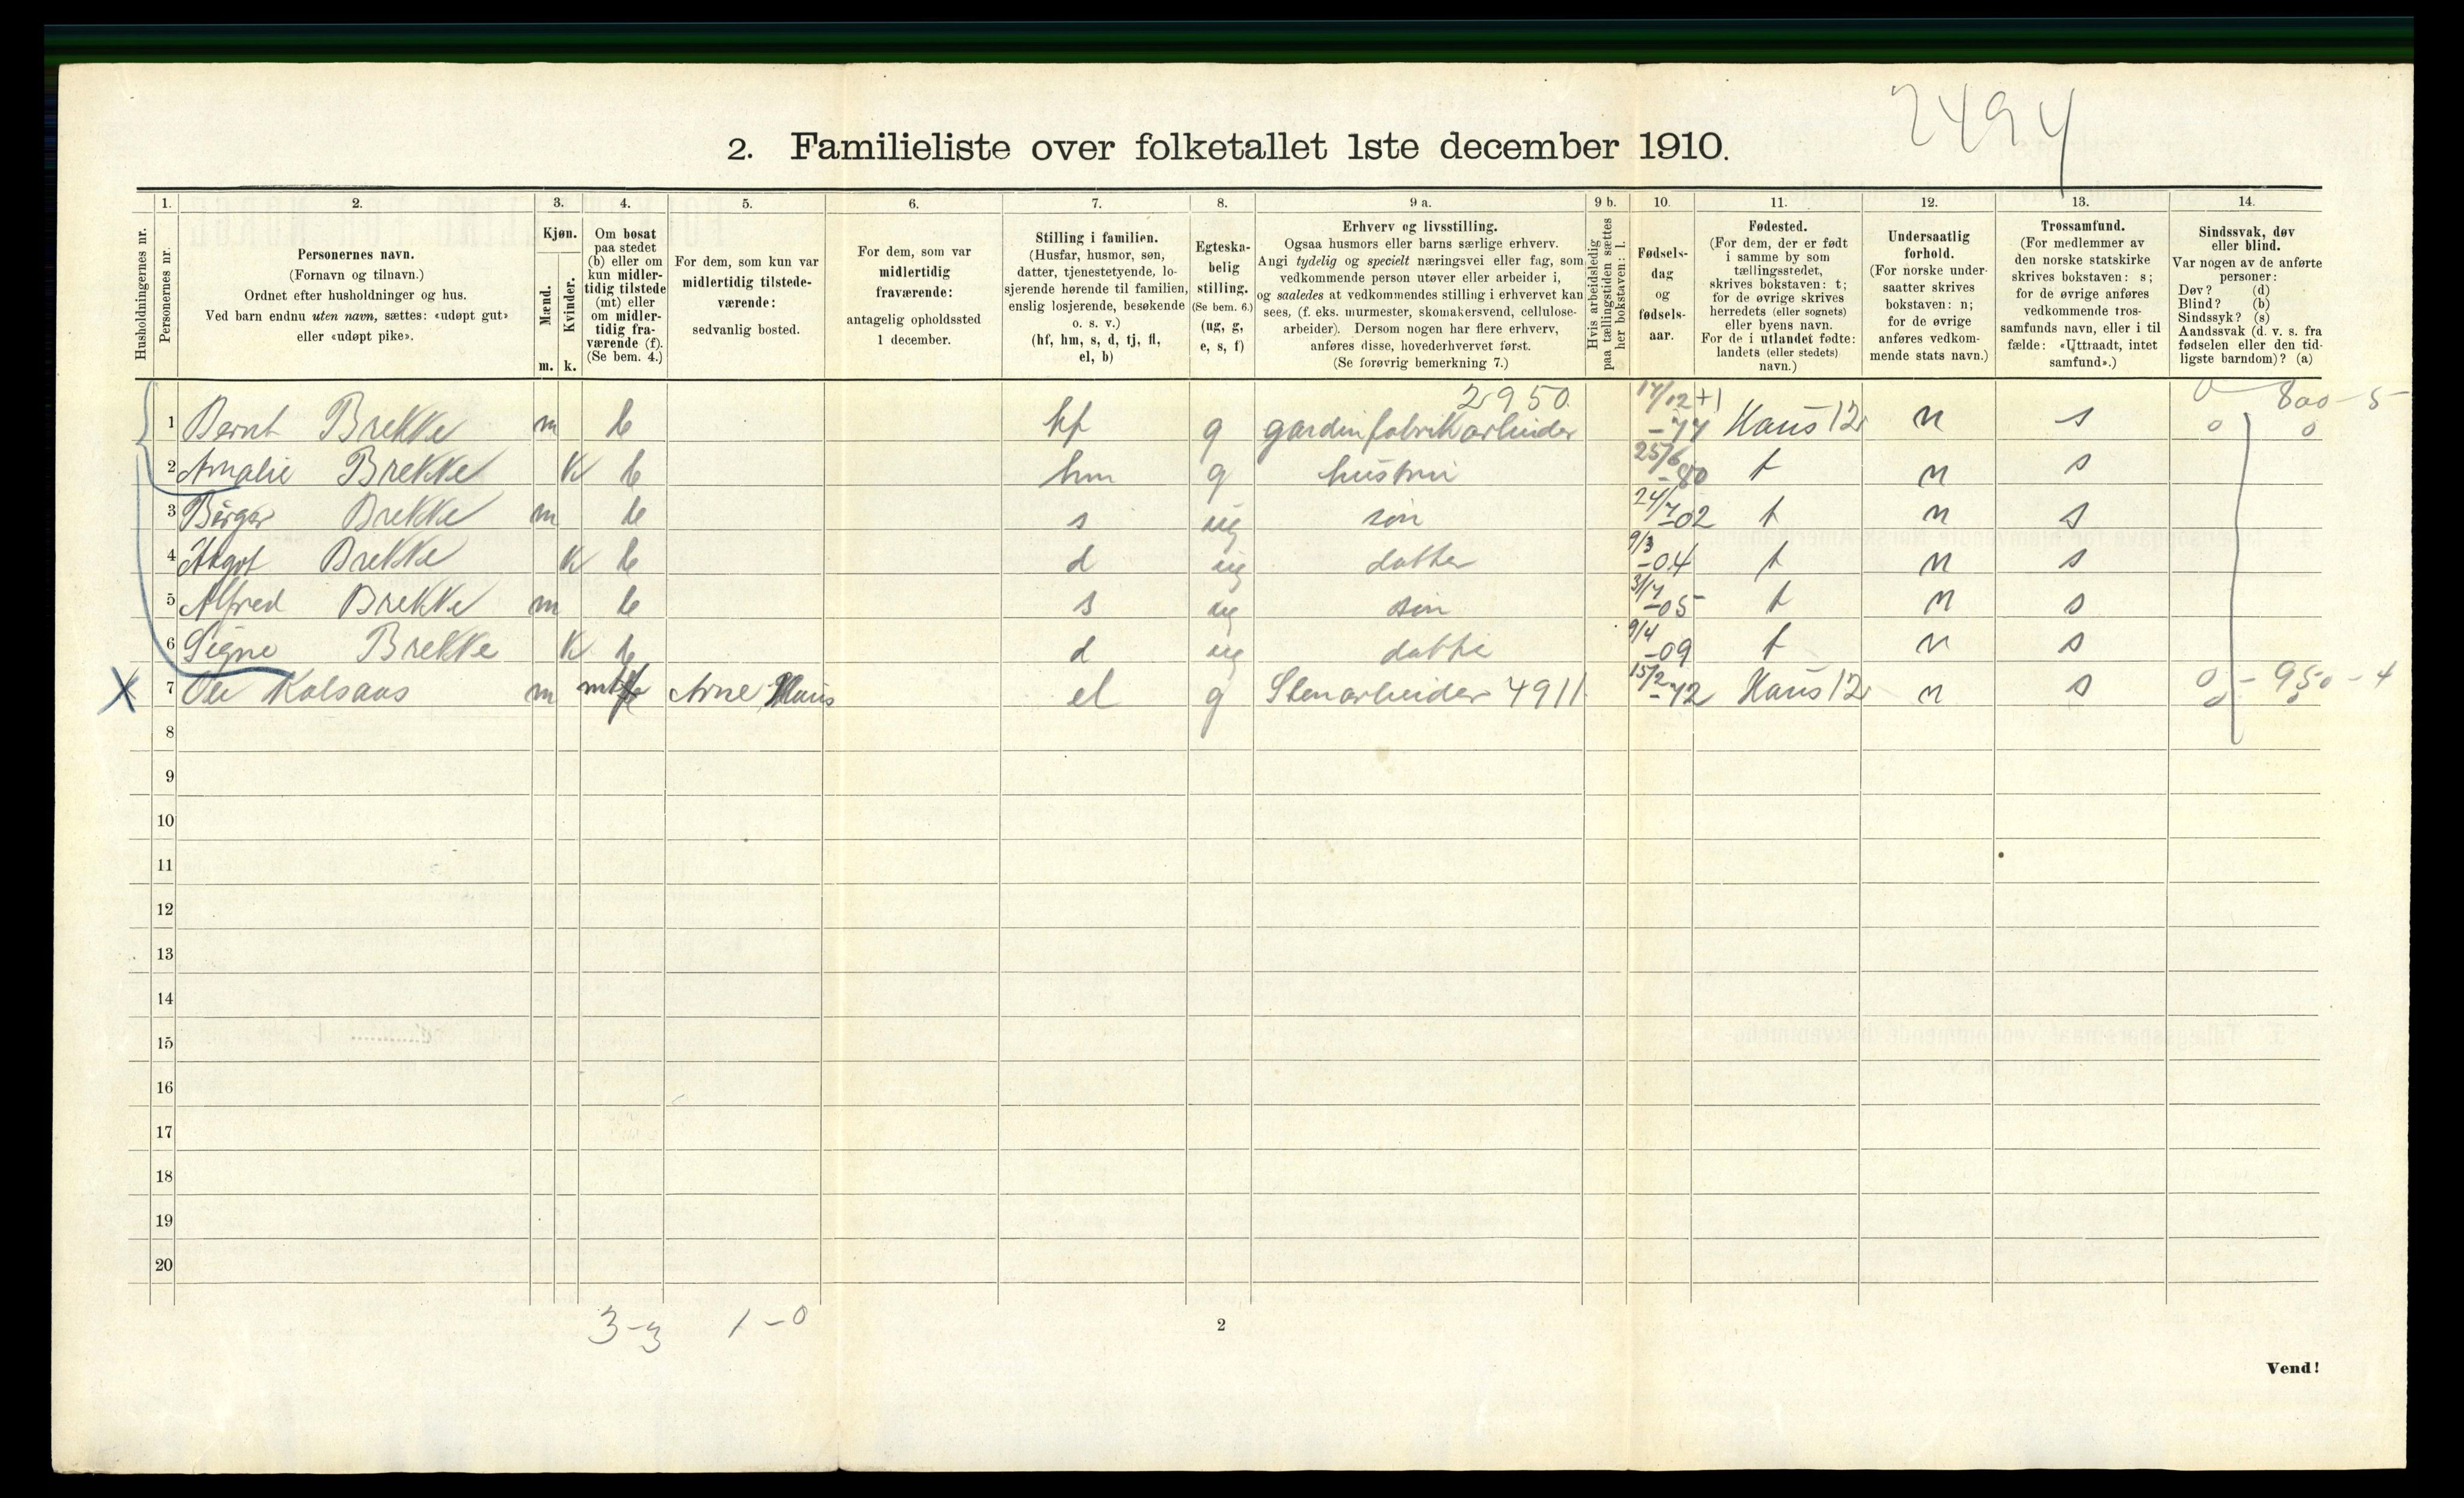 2494
2. Familieliste over folketallet 1ste december 1910.
Husholdningernes nr.
1.
Personernes nr.
2.
Personernes navn.
(Fornavn og tilnavn.)
Ordnet efter husholdninger og hus.
Ved barn endnu uten navn, sættes: «udøpt gut»
eller «udøpt pike».
3.
Kjøn.
Mænd.
Kvinder.
m. k.
4.
Om bosat
paa stedet
(b) eller om
kun midler-
tidig tilstede
(mt) eller
om midler-
tidig fra-
værende (f).
(Se bem. 4.)
5.
For dem, som kun var
midlertidig tilstede-
værende:
sedvanlig bosted.
6.
For dem, som var
midlertidig
fraværende:
antagelig opholdssted
1 december.
7.
Stilling i familien.
(Husfar, husmor, søn,
datter, tjenestetyende, lo-
sjerende hørende til familien,
enslig losjerende, besøkende
o. s. v.)
(hf, hm, s, d, tj, fl,
el, b)
8.
Egteska-
belig
stilling.
(Se bem. 6.)
(ug, g,
e, s, f)
9 a.
Erhverv og livsstilling.
Ogsaa husmors eller barns særlige erhverv.
Angi tydelig og specielt næringsvei eller fag, som
vedkommende person utøver eller arbeider i,
og saaledes at vedkommendes stilling i erhvervet kan
sees, (f. eks. murmester, skomakersvend, cellulose-
arbeider). Dersom nogen har flere erhverv,
anføres disse, hovederhvervet først.
(Se forøvrig bemerkning 7.)
9 b.
Hvis arbeidsledig
paa tællingstiden sættes
her bokstaven: l.
10.
Fødsels-
dag
og
fødsels-
aar.
11.
Fødested.
(For dem, der er født
i samme by som
tællingsstedet,
skrives bokstaven: t;
for de øvrige skrives
herredets (eller sognets)
eller byens navn.
For de i utlandet fødte:
landets (eller stedets)
navn.)
12.
Undersaatlig
forhold.
(For norske under-
saatter skrives
bokstaven: n;
for de øvrige
anføres vedkom-
mende stats navn.)
13.
Trossamfund.
(For medlemmer av
den norske statskirke
skrives bokstaven: s;
for de øvrige anføres
vedkommende tros-
samfunds navn, eller i til
fælde: «Uttraadt, intet
samfund».)
14.
Sindssvak, døv
eller blind.
Var nogen av de anførte
personer:
Døv? (d)
Blind? (b)
Sindssyk? (s)
Aandssvak (d. v. s. fra
fødselen eller den tid-
ligste barndom)? (a)
2950 17/12 +1 0 800-5
1 Bernt Brekke m b hf g gardinfabrikarbeider -77 Haus 12 n s 0 0
2 Amalie Brekke k b hm g hustru 25/6 -80 t n s
3 Birger Brekke m b s ug søn 24/7 -02 t n s
4 Aagot Brekke k b d ug datter 9/3 -04 t n s
5 Alfred Brekke m b s ug søn 3/7 -05 t n s
6 Signe Brekke k b d ug datter 9/4 -09 t n s
X 7 Ole Kalsaas m mt Arne Haus el g Stenarbeider 4911 15/2 -72 Haus 12 n s 0 - 950 - 4
8
9
10
11
12
13
14
15
16
17
18
19
20
3-3 1-0
2
Vend!